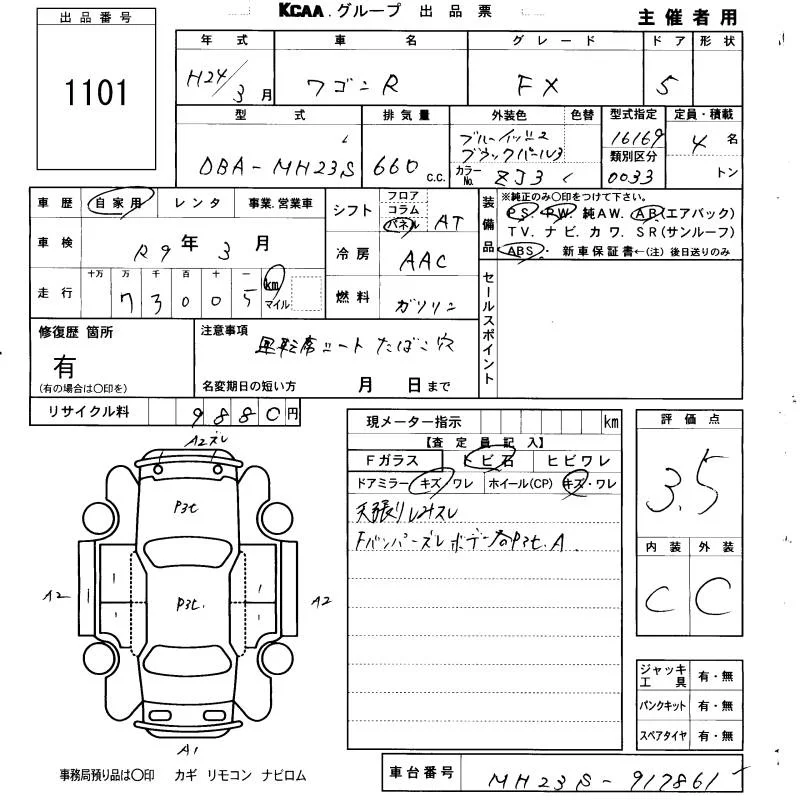 KCAA.グループ 出品票
主催者用
出品番号
1101
年式 車名 グレード ドア 形状
H24/3月 ワゴンR FX 5
型式 排気量 外装色 色替 型式指定 定員・積載
DBA-MH23S 660 c.c.
ブルーイッシュ
ブラックパール3
カラーNo. ZJ3
16169
類別区分
0033
4名
トン
車歴 自家用 レンタ 事業.営業車
車検 R9年3月
走行 十万 万 千 百 十 一
73005 km マイル
シフト フロア コラム パネル AT
冷房 AAC
燃料 ガソリン
装備品
※純正のみ〇印をつけて下さい。
PS. PW. 純AW. AB(エアバック)
TV. ナビ. カワ. SR(サンルーフ)
ABS・ 新車保証書←(注) 後日送りのみ
セールスポイント
修復歴 箇所
有
(有の場合は〇印を)
注意事項
運転席シート たばこ穴
名変期日の短い方 月 日まで
リサイクル料 9880円
現メーター指示 km
【査定員記入】
Fガラス トビ石 ヒビワレ
ドアミラー キズ/ワレ ホイール(CP) キズ・ワレ
天張りしみスレ
Fバンパーズレ ボデー各Pヨセ.A
評価点
3.5
内装 外装
C C
A2ズレ
Pヨセ
Pヨセ.
A2
A2
A1
ジャッキ工具 有・無
パンクキット 有・無
スペアタイヤ 有・無
事務局預り品は〇印 カギ リモコン ナビロム
車台番号 MH23S-917861